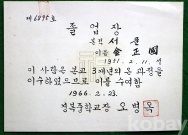 제6898호
졸업장
본적 서울
이름 金正國
1951. 2. 11 생
이 사람은 본교 3개년의 온 과정을
이수하였으므로 이를 수여함
1966. 2. 23.
경복중학교장 오
kobay